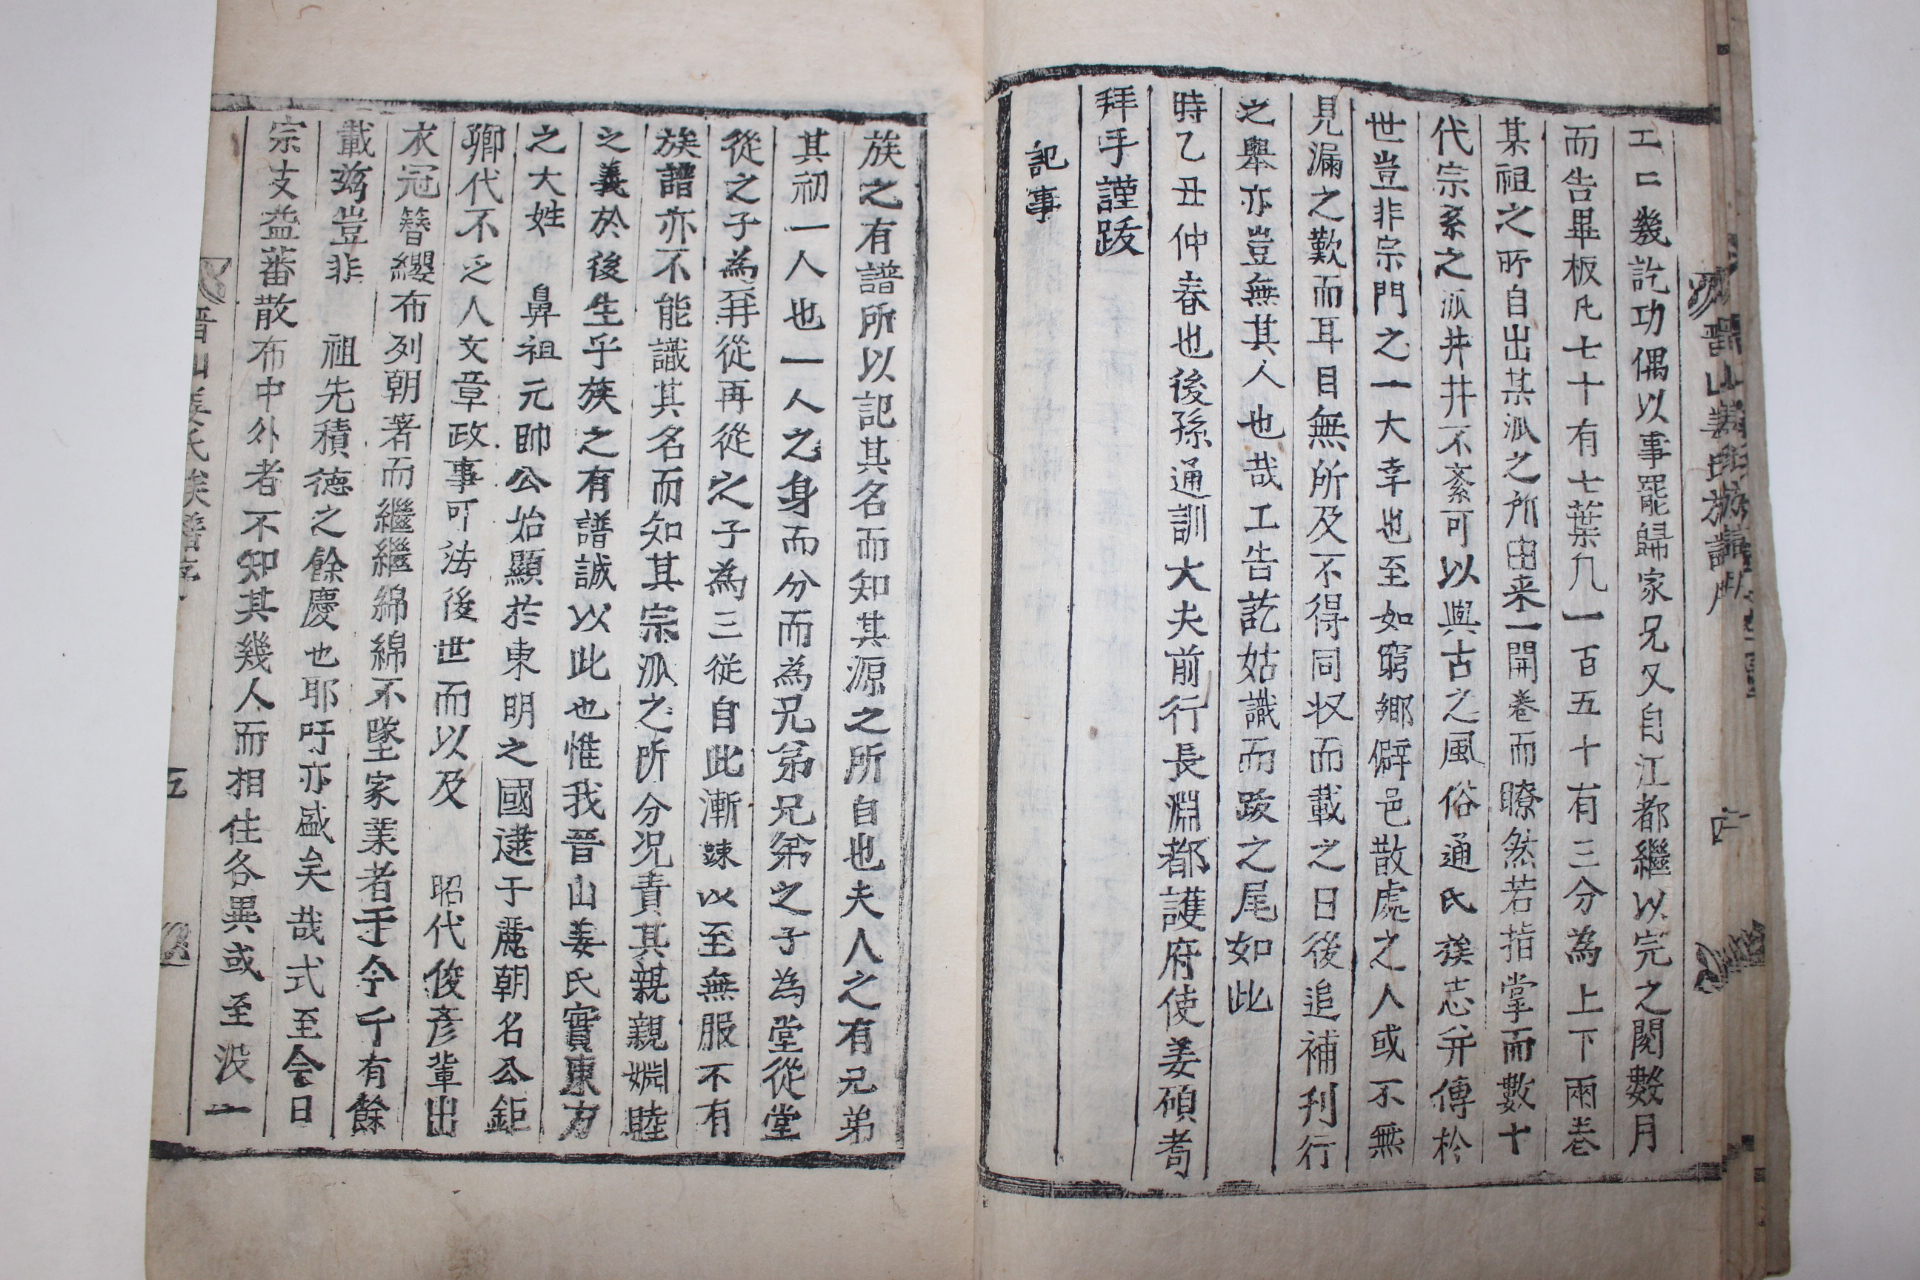 工工幾訖功偶以事罷歸家兄又自江都繼以完之閱數月
而告畢板凡七十有七葉凡一百五十有三分為上下兩卷
某祖之所自出某派之所由来一開卷而瞭然若指掌而數十
代宗系之派井井不紊可以與古之風俗通氏族志並傳於
世豈非宗門之一大幸也至如窮鄉僻邑散處之人或不無
見漏之歎而耳目無所及不得同収而載之日後追補刊行
之擧亦豈無其人也哉工告訖姑識而跋之尾如此
時乙丑仲春也後孫通訓大夫前行長淵都護府使姜碩耉
拜手謹跋
記事
族之有譜所以記其名而知其源之所自也夫人之有兄弟
其初一人也一人之身而分而為兄弟兄弟之子為堂從堂
從之子為再從再從之子為三從自此漸踈以至無服不有
族譜亦不能識其名而知其宗派之所分況責其親親婣睦
之義於後生乎族之有譜誠以此也惟我晉山姜氏實東方
之大姓 鼻祖元帥公始顯於東明之國逮于麗朝名公鉅
卿代不乏人文章政事可法後世而以及 昭代俊彦輩出
衣冠簪纓布列朝著而繼繼綿綿不墜家業者于今千有餘
載玆豈非 祖先積德之餘慶也耶吁亦盛矣哉式至今日
宗支益蕃散布中外者不知其幾人而相住各異或至沒一
晉山姜氏族譜序
五
晉山姜氏族譜序
四